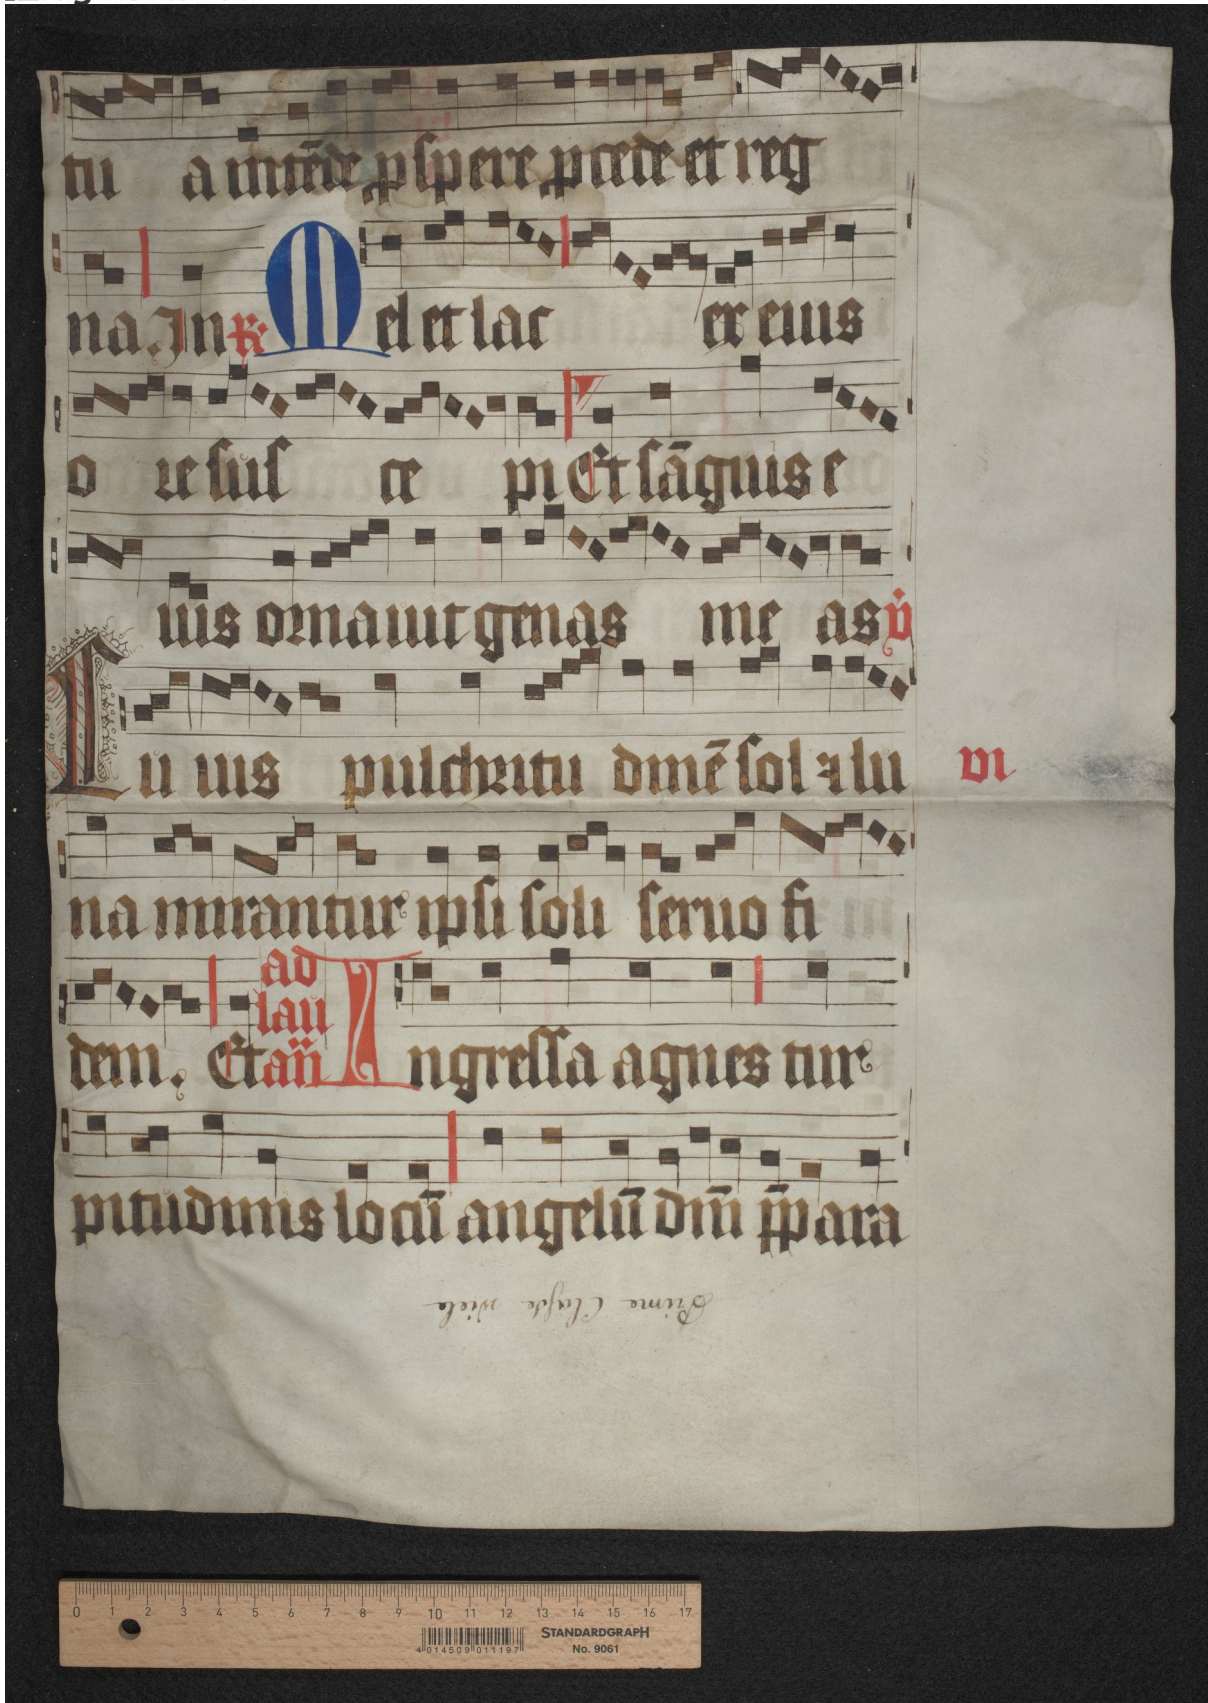 tu a intēde ꝓspere ꝓcede et reg
na. In ℟. Mel et lac ex eius
o re sus ce pi Et sāguis e
ius ornauit genas me as v̇
Cu ius pulchritu dinē sol ⁊ lu vi
na mirantur ipsi soli seruo fi
dem. Et ad lau an̄ Ingressa agnes tur
pitudinis locū angelū dn̄i p̄para
Prima Classe
0 1 2 3 4 5 6 7 8 9 10 11 12 13 14 15 16 17
STANDARDGRAPH
4 014509 011197
No. 9061